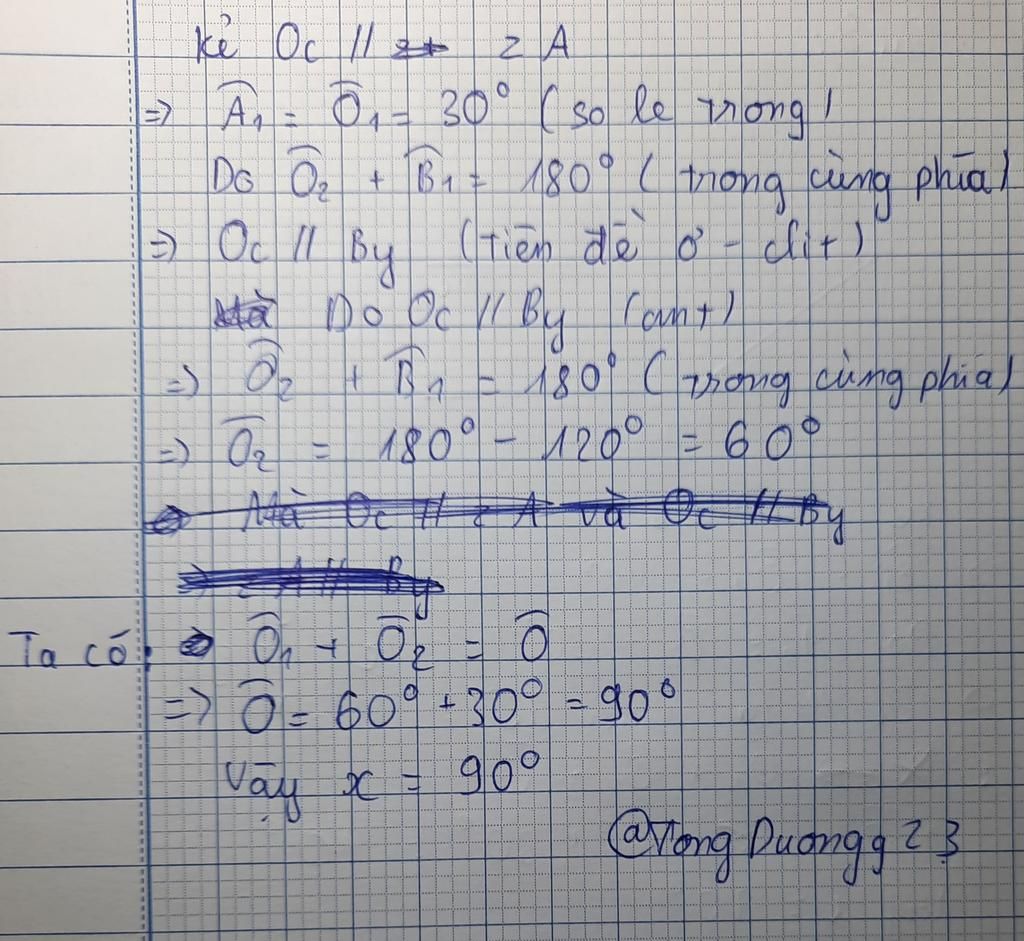 Kẻ Oc // z A
=> Â₁ = Ô₁ = 30° (so le trong)
Do Ô₂ + B̂₁ = 180° (trong cùng phía)
=> Oc // By (tiên đề Ơ - clit)
Do Oc // By (cmt)
=> Ô₂ + B̂₁ = 180° (trong cùng phía)
=> Ô₂ = 180° - 120° = 60°
Mà Oc // z A và Oc // By
=> z A // By
Ta có: Ô₁ + Ô₂ = Ô
=> Ô = 60° + 30° = 90°
Vậy x = 90°
@Tong Duongg 23